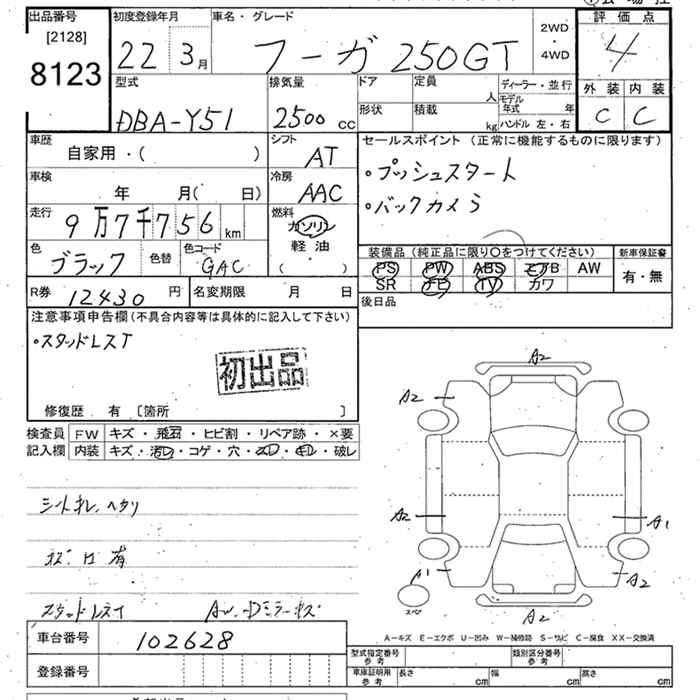 出品番号
[2128]
8123
初度登録年月
22 3月
車名・グレード
フーガ 250GT
2WD
・
4WD
評価点
4
外装 内装
C C
型式
DBA-Y51
排気量
2500 cc
ドア
定員
人
形状
積載
kg
ディーラー・並行
モデル年式 年
ハンドル 左・右
車歴
自家用・( )
シフト
AT
車検
年 月( 日)
冷房
AAC
走行
9万7千756 km
燃料
ガソリン
軽油
( )
色
ブラック
色替
色コード
GAC
セールスポイント (正常に機能するものに限ります)
・プッシュスタート
・バックカメラ
装備品 (純正品に限り〇をつけてください)
PS PW ABS エアB AW
SR TV カワ
新車保証書
有・無
R券 12430 円
名変期限 月 日
後日品
注意事項申告欄(不具合内容等は具体的に記入して下さい)
・スタッドレスT
初出品
修復歴 有 [箇所 ]
検査員
記入欄
FW キズ・飛石・ヒビ割・リペア跡・×要
内装 キズ・汚れ・コゲ・穴・スレ・キレ・破レ
A2
A2
A2
A1
A1
A2
A2
スペア
A-キズ E-エクボ U-凹み W-補修跡 S-サビ C-腐食 XX-交換済
車台番号 102628
登録番号
型式指定番号
参考
類別区分番号
参考
車庫証明用
参考
長さ cm
幅 cm
高さ cm